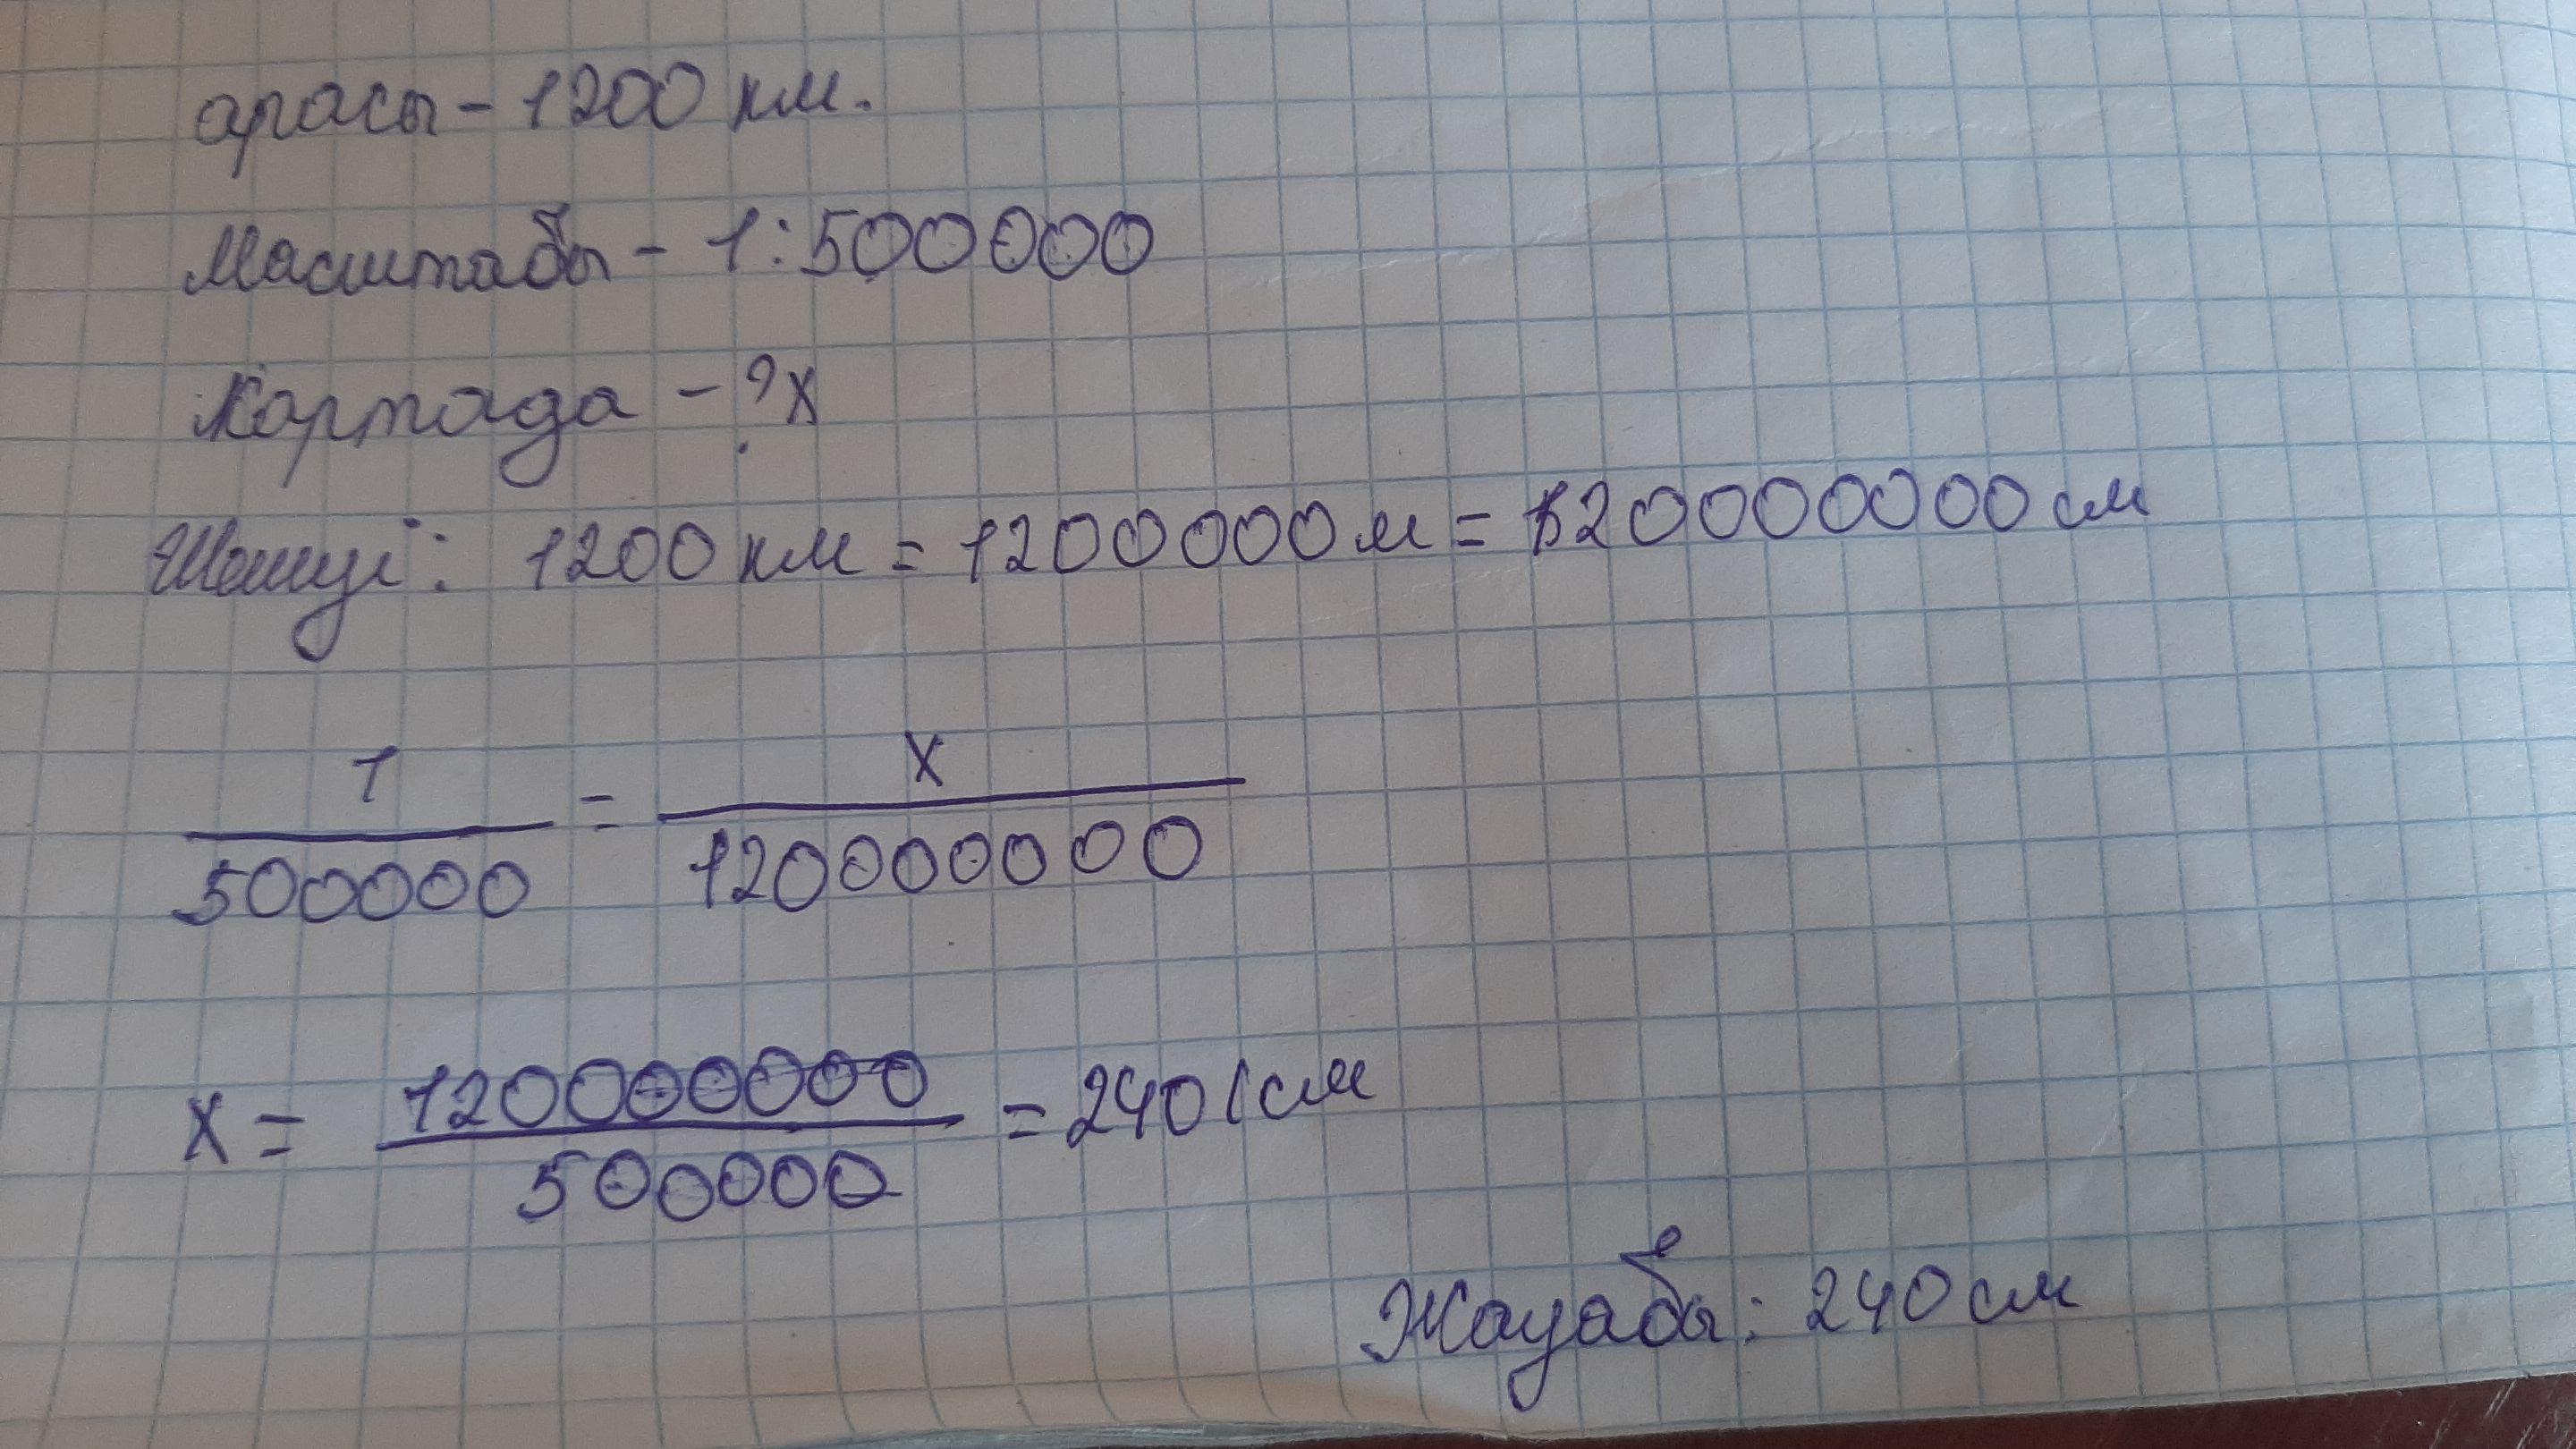 арасы - 1200 км.
Масштабы - 1:500000
Картада - ? х
Шешуі: 1200 км = 1200000 м = 120000000 см
1/500000 = х/120000000
х = 120000000/500000 = 240 (см
Жауабы: 240 см